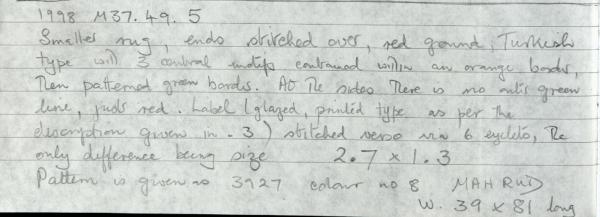 1998 M37.49.5
Smaller rug, ends stitched over, red ground, Turkish
type with 3 central motifs contained within an orange border,
then patterned green border. At the sides there is no outer green
line, just red. Label (glazed, printed type as per the
description given in .3) stitched verso via 6 eyelets, the
only difference being size 2.7 x 1.3
Pattern is given as 3927 colour no 8 MAHRUD
W. 39 x 81 long